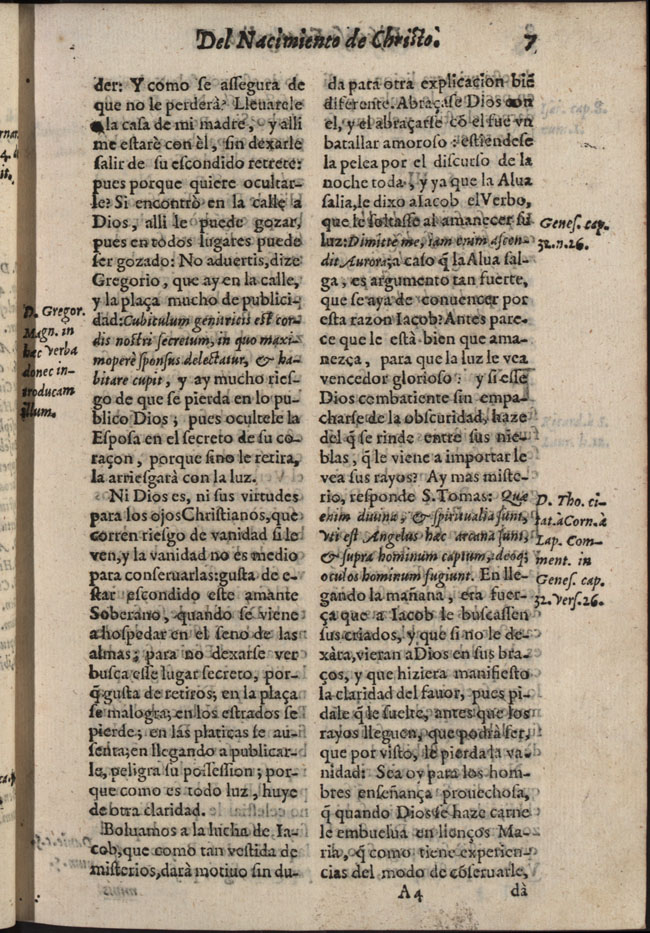 Del Nacimiento de Christo. 7
der: Y como se assegura de
que no le perderà? Lleuarele
a la casa de mi madre, y alli
me estarè con èl, sin dexarle
salir de su escondido retrete:
pues porque quiere ocultar-
le? Si encontrò en la calle a
Dios, alli le puede gozar,
pues en todos lugares puede
ser gozado: No aduertis, dize
Gregorio, que ay en la calle,
y la plaça mucho de publici-
dad: Cubitulum genitricis est cor-
dis nostri secretum, in quo maxi-
moperè sponsus delectatur, & ha-
bitare cupit, y ay mucho ries-
go de que se pierda en lo pu-
blico Dios; pues ocultele la
Esposa en el secreto de su co-
raçon, porque sino le retira,
la arriesgarà con la luz.
Ni Dios es, ni sus virtudes
para los ojos Christianos, que
corren riesgo de vanidad si le
ven, y la vanidad no es medio
para conseruarlas: gusta de e-
star escondido este amante
Soberano, quando se viene
a hospedar en el seno de las
almas; para no dexarse ver
busca esse lugar secreto, por-
q̃ gusta de retiros; en la plaça
se malogra; en los estrados se
pierde; en las platicas se au-
senta; en llegando a publicar-
le, peligra su possession; por-
que como es todo luz, huye
de otra claridad.
Boluamos a la lucha de Ia-
cob, que como tan vestida de
misterios, darà motiuo sin du-
D. Gregor.
Magn. in
hæc verba
donec in-
troducam
illum.
da para otra explicacion biẽ
diferente. Abraçase Dios con
el, y el abraçarse cõ el fue vn
batallar amoroso: estiendese
la pelea por el discurso de la
noche toda, y ya que la Alua
salia, le dixo a Iacob el Verbo,
que le soltasse al amanecer su
luz: Dimitte me, iam enim ascen-
dit Aurora; a caso q̃ la Alua sal-
ga, es argumento tan fuerte,
que se aya de conuencer por
esta razon Iacob? Antes pare-
ce que le està bien que ama-
nezça, para que la luz le vea
vencedor glorioso: y si esse
Dios combatiente sin empa-
charse de la obscuridad, haze
del q̃ se rinde entre sus nie-
blas, q̃ le viene a importar le
vea sus rayos? Ay mas miste-
rio, responde S. Tomas: Quæ
enim diuina, & spiritualia sunt,
vti est Angelus hæc arcana sunt,
& supra hominum captum, deoq;
oculos hominum fugiunt. En lle-
gando la mañana, era fuer-
ça que a Iacob le buscassen
sus criados, y que si no le de-
xàra, vieran a Dios en sus bra-
ços, y que hiziera manifiesto
la claridad del fauor, pues pi-
dale q̃ le suelte, antes que los
rayos lleguen, que podrà ser,
que por visto, le pierda la va-
nidad: Sea oy para los hom-
bres enseñança prouechosa,
q̃ quando Dios se haze carne
le embuelua en lienços Ma-
ria, q̃ como tiene experien-
cias del modo de cõseruarle,
Genes. cap.
32. n. 26.
D. Tho. ci-
tat. à Corn. à
Lap. Com-
ment. in
Genes. cap.
32. vers. 26.
A4 dà